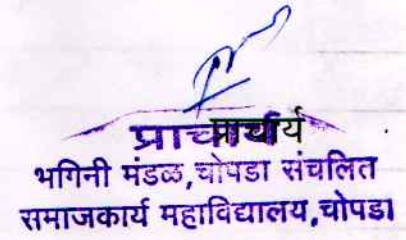 प्राचार्य
भगिनी मंडळ,चोपडा संचलित
समाजकार्य महाविद्यालय,चोपडा